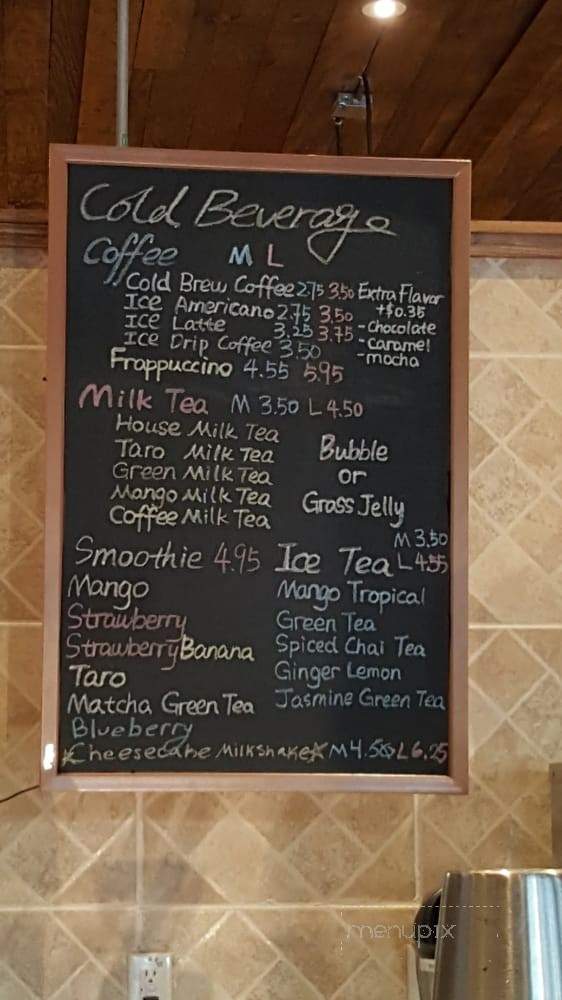 Cold Beverage
Coffee M L
Cold Brew Coffee 2.75 3.50
Ice Americano 2.75 3.50
ICE Latte 3.25 3.75
ICE Drip Coffee 3.50
Frappuccino 4.55 5.95
Extra Flavor
+$0.35
-Chocolate
-Caramel
-mocha
Milk Tea M 3.50 L 4.50
House Milk Tea
Taro Milk Tea
Green Milk Tea
Mango Milk Tea
Coffee Milk Tea
Bubble
or
Grass Jelly
Smoothie 4.95
Mango
Strawberry
Strawberry Banana
Taro
Matcha Green Tea
Blueberry
M 3.50
Ice Tea L 4.55
Mango Tropical
Green Tea
Spiced Chai Tea
Ginger Lemon
Jasmine Green Tea
Cheesecake Milkshake M 4.50 L 6.25
menupix